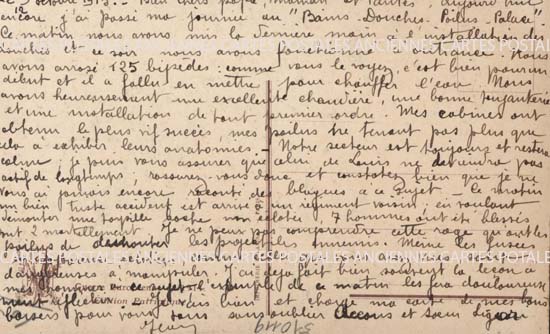 octobre 1915. — Bien chers papa, maman et tantes aujourd'hui
encore j'ai passé ma journée au "Bains-Douches-Poilus-Palace"
Ce matin nous avons mis la dernière main à l'installation des
douches et ce soir nous avons Nous
avons arrosé 125 bipèdes: comme vous le voyez, c'est bien pour un
début et il a fallu en mettre pour chauffer l'eau. Nous
avons heureusement une excellente chaudière, une bonne
et une installation de tout premier ordre. Mes cabines ont
obtenu le plus vif succès, mes poilus ne tenant pas plus que
cela à exhiber leurs anatomies. — Notre secteur est toujours et restera
calme, je puis vous assurer que celui de Louis ne deviendra pas
actif de longtemps, rassurez-vous donc et constatez bien que je ne
vous ai jamais encore raconté de blagues à ce sujet. — Ce matin
un bien triste accident est arrivé à un régiment voisin; en voulant
démonter une torpille boche non éclatée 7 hommes ont été blessés
dont 2 mortellement. Je ne peux pas comprendre cette rage qu'ont les
poilus de démonter les projectiles ennemis. Même les fusées
dangereuses à manipuler. J'ai déjà fait bien souvent la leçon à
mes hommes à ce sujet, l'exemple de ce matin les fera douloureuse
ment réfléchir. Je vais bien et charge ma carte de mes bons
baisers pour vous tous sans oublier et Sœur
Jean